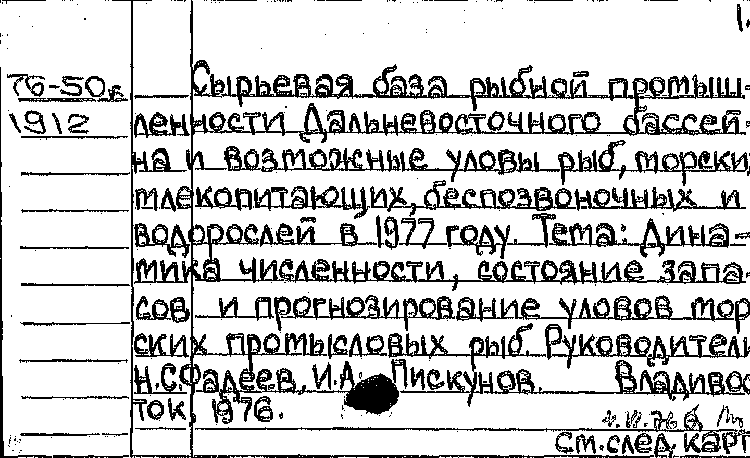 1.
76-50б Сырьевая база рыбной промыш-
1912 ленности Дальневосточного бассей-
на и возможные уловы рыб, морских
млекопитающих, беспозвоночных и
водорослей в 1977 году. Тема: Дина-
мика численности, состояние запа-
сов и прогнозирование уловов мор-
ских промысловых рыб. Руководители
Н.С.Фадеев, И.А. Пискунов. Владивос
ток, 1976.
см. след. карт